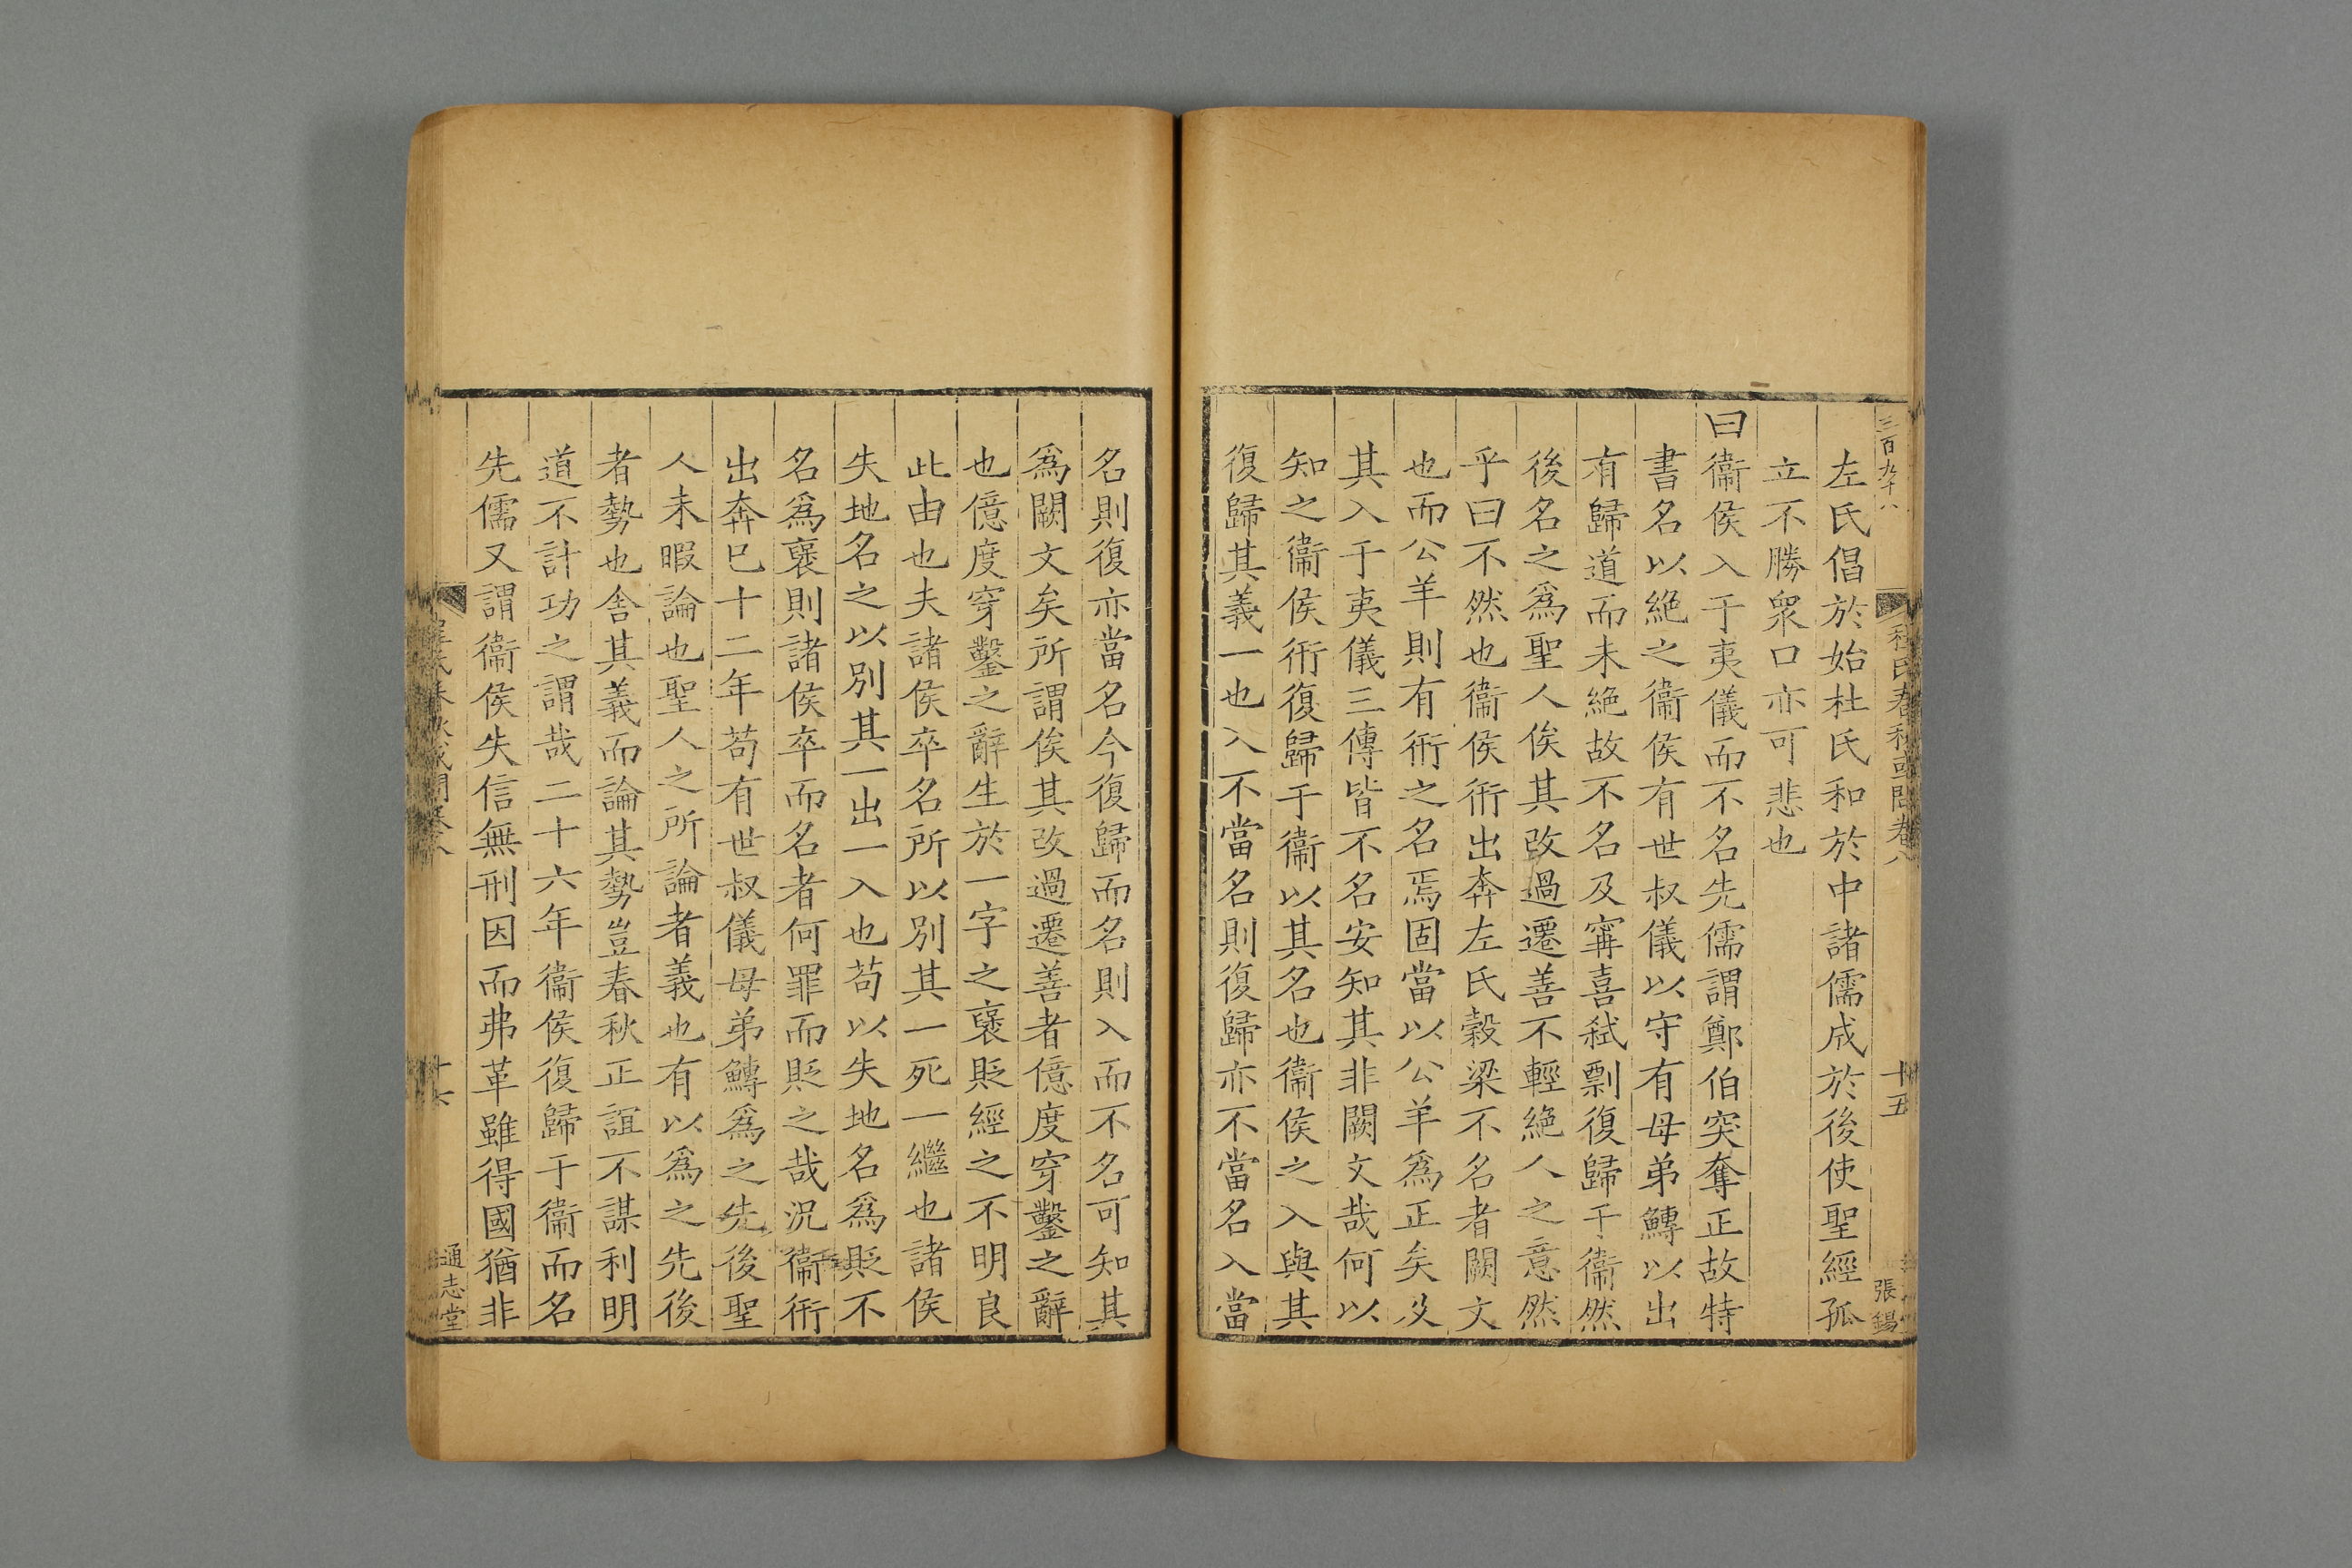 三百九十八
程氏春秋或問卷八
十五
張錫
左氏倡於始杜氏和於中諸儒成於後使聖經孤
立不勝衆口亦可悲也
曰衞侯入于夷儀而不名先儒謂鄭伯突奪正故特
書名以絶之衞侯有世叔儀以守有母弟鱄以出
有歸道而未絶故不名及甯喜弑剽復歸于衞然
後名之爲聖人俟其改過遷善不輕絶人之意然
乎曰不然也衞侯衎出奔左氏穀梁不名者闕文
也而公羊則有衎之名焉固當以公羊爲正矣及
其入于夷儀三傳皆不名安知其非闕文哉何以
知之衞侯衎復歸于衞以其名也衞侯之入與其
復歸其義一也入不當名則復歸亦不當名入當
名則復亦當名今復歸而名則入而不名可知其
爲闕文矣所謂俟其改過遷善者億度穿鑿之辭
也億度穿鑿之辭生於一字之襃貶經之不明良
此由也夫諸侯卒名所以別其一死一繼也諸侯
失地名之以別其一出一入也苟以失地名爲貶不
名爲襃則諸侯卒而名者何罪而貶之哉況衞衎
出奔巳十二年苟有世叔儀母弟鱄爲之先後聖
人未暇論也聖人之所論者義也有以爲之先後
者勢也舍其義而論其勢豈春秋正誼不謀利明
道不計功之謂哉二十六年衞侯復歸于衞而名
先儒又謂衞侯失信無刑因而弗革雖得國猶非
通志堂